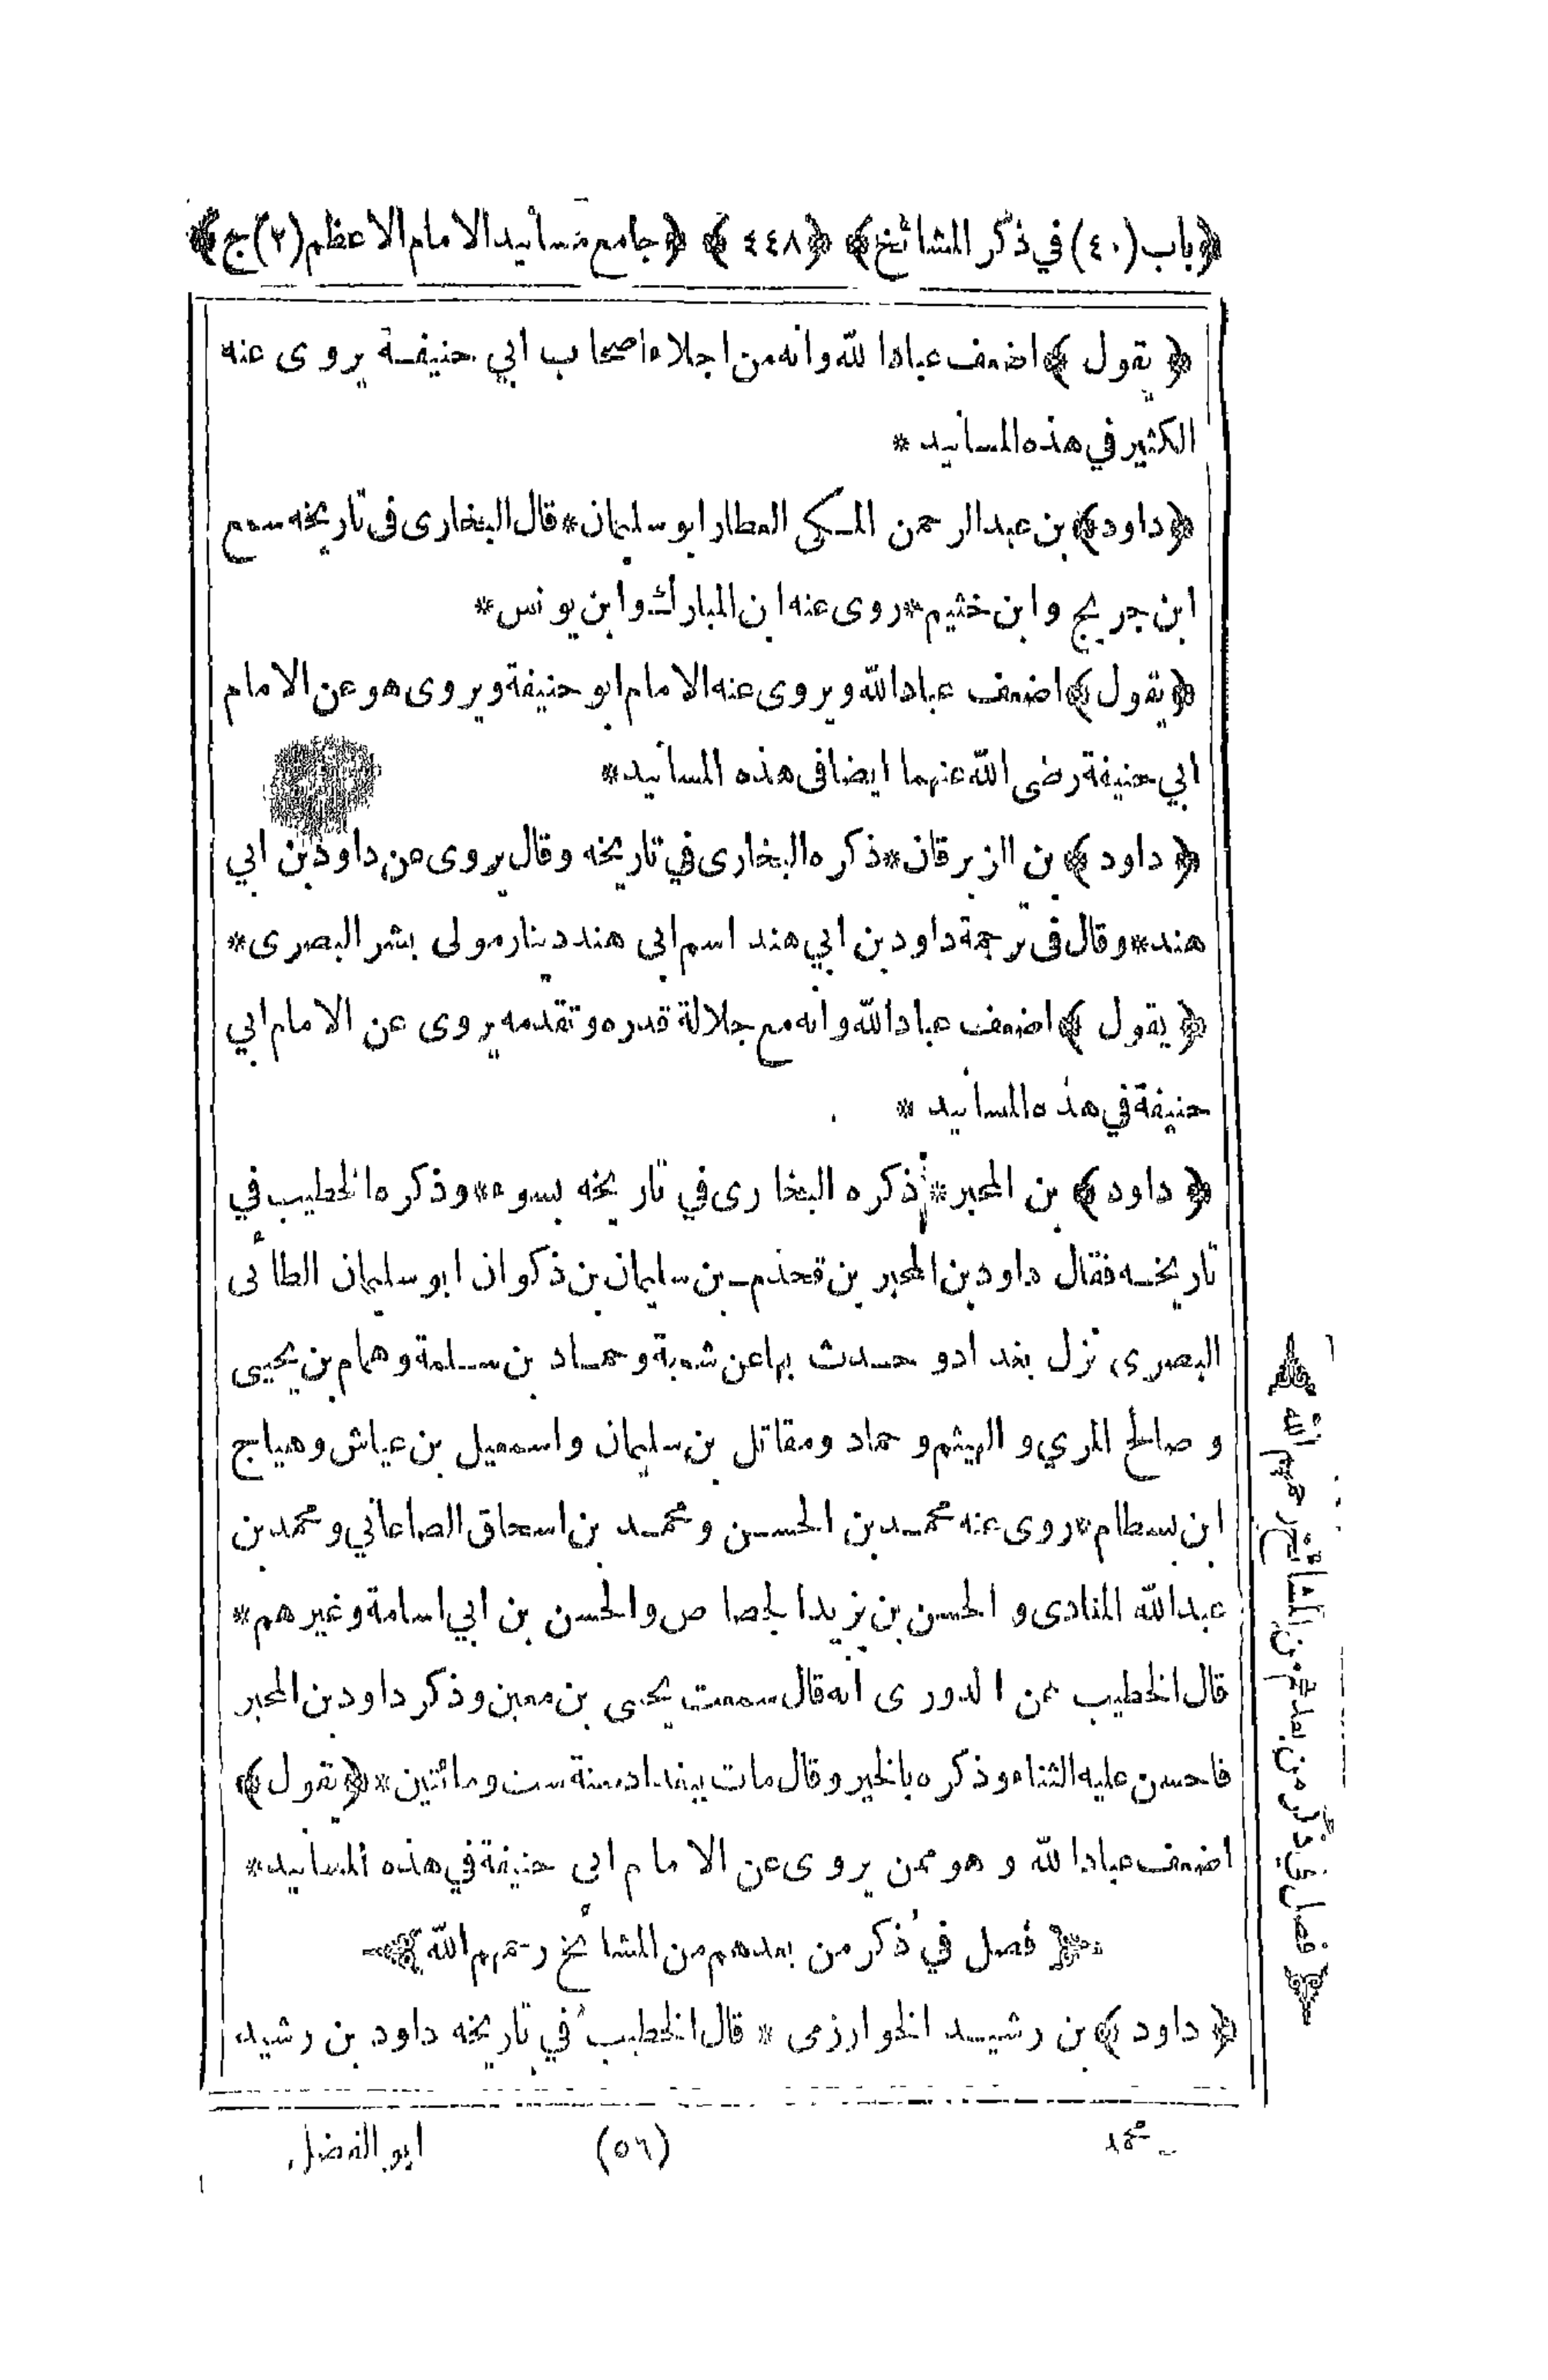 ﴿باب (٤٠) في ذكر المشائخ﴾ ﴿٤٤٨﴾ ﴿جامع مسانيد الامام الاعظم (٢) ج﴾
﴿يقول﴾ اضعف عباد الله وانه من اجلاء اصحاب ابي حنيفة يروى عنه
الكثير في هذه المسانيد *
﴿داود﴾ بن عبد الرحمن المكى العطار ابو سليمان * قال البخارى فى تاريخه سمع
ابن جريج وابن خثيم * روى عنه ابن المبارك وابن يونس *
﴿يقول﴾ اضعف عباد الله ويروى عنه الامام ابو حنيفة ويروى هو عن الامام
ابي حنيفة رضى الله عنهما ايضا فى هذه المسانيد *
﴿داود﴾ بن الزبرقان * ذكره البخارى في تاريخه وقال يروى عن داود بن ابي
هند * وقال فى ترجمة داود بن ابي هند اسم ابى هند دينار مولى بشر البصرى *
﴿يقول﴾ اضعف عباد الله وانه مع جلالة قدره وتقدمه يروى عن الامام ابي
حنيفة في هذه المسانيد *
﴿داود﴾ بن المحبر * ذكره البخارى في تاريخه بسوء * وذكره الخطيب في
تاريخه فقال داود بن المحبر بن قحذم بن سليمان بن ذكوان ابو سليمان الطائى
البصرى نزل بغداد و حدث بها عن شعبة وحماد بن سلمة وهمام بن يحيى
و صالح المري و الهيثم و حماد ومقاتل بن سليمان واسمعيل بن عياش وهياج
ابن بسطام * روى عنه محمد بن الحسين ومحمد بن اسحاق الصاغاني ومحمد بن
عبد الله المنادى و الحسن بن يزيد الجصاص والحسن بن ابي اسامة وغيرهم *
قال الخطيب عن الدورى انه قال سمعت يحيى بن معين وذكر داود بن المحبر
فاحسن عليه الثناء وذكره بالخير وقال مات ببغداد سنة ست ومائتين * ﴿يقول﴾
اضعف عباد الله و هو ممن يروى عن الامام ابى حنيفة في هذه المسانيد *
﴿فصل في ذكر من بعدهم من المشائخ رحمهم الله﴾
﴿داود﴾ بن رشيد الخوارزمى * قال الخطيب في تاريخه داود بن رشيد
(٥٦)
ابو الفضل
﴿فصل في ذكر من بعدهم من المشائخ رحمهم الله﴾